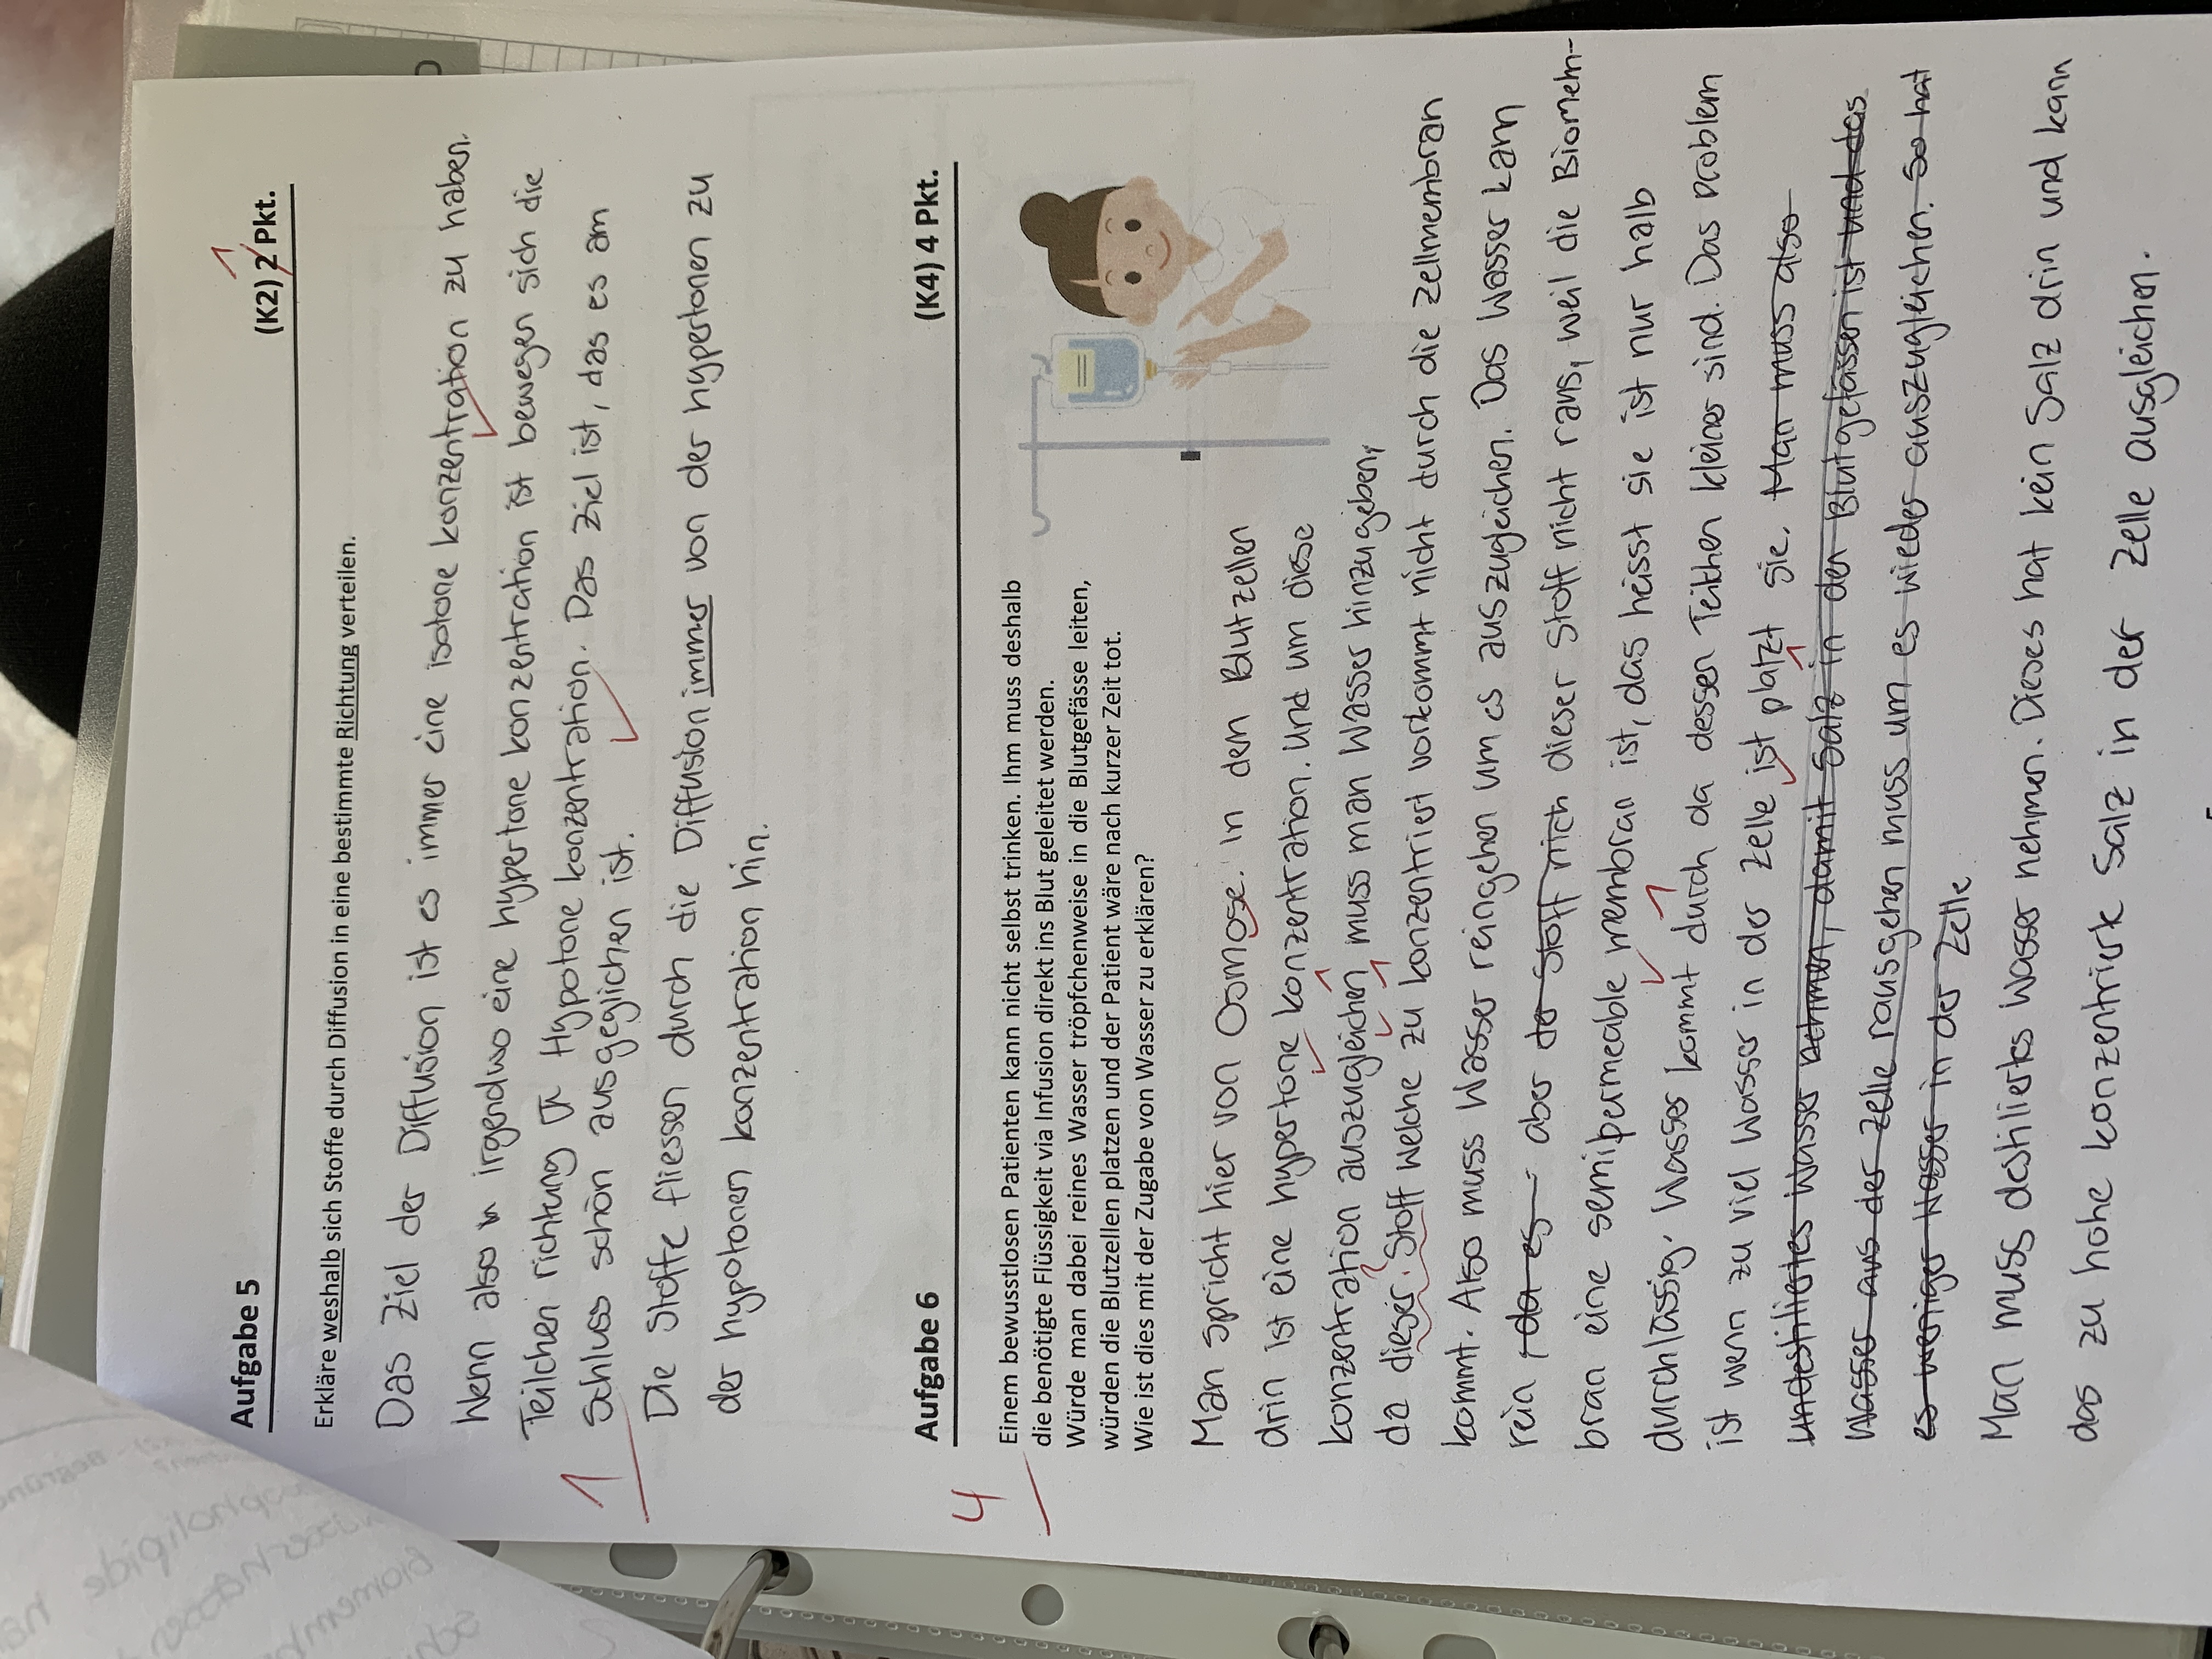 Aufgabe 5
(K2) 2 Pkt.
1
Erkläre weshalb sich Stoffe durch Diffusion in eine bestimmte Richtung verteilen.
Das Ziel der Diffusion ist es immer eine isotone konzentration zu haben.
Wenn also irgendwo eine hypertone konzentration ist bewegen sich die
Teilchen richtung Hypotone konzentration. Das Ziel ist, das es am
Schluss schön ausgeglichen ist.
1
Die Stoffe fliessen durch die Diffusion immer von der hypertonen zu
der hypotonen konzentration hin.
Aufgabe 6
(K4) 4 Pkt.
4
Einem bewusstlosen Patienten kann nicht selbst trinken. Ihm muss deshalb
die benötigte Flüssigkeit via Infusion direkt ins Blut geleitet werden.
Würde man dabei reines Wasser tröpfchenweise in die Blutgefässe leiten,
würden die Blutzellen platzen und der Patient wäre nach kurzer Zeit tot.
Wie ist dies mit der Zugabe von Wasser zu erklären?
Man spricht hier von Osmose. In den Blutzellen
drin ist eine hypertone konzentration. Und um diese
konzentration auszugleichen muss man Wasser hinzugeben,
da dieser Stoff welche zu konzentriert vorkommt nicht durch die Zellmembran
kommt. Also muss Wasser reingehen um es auszugleichen. Das Wasser kann
rein, da es aber der Stoff nich dieser Stoff nicht raus, weil die Biomem-
bran eine semipermeable membran ist, das heisst sie ist nur halb
durchlässig. Wasser kommt durch da dessen Teilchen kleiner sind. Das Problem
ist wenn zu viel Wasser in der Zelle ist platzt sie. Man muss also
undestilliertes Wasser nehmen, damit Salz in den Blutgefässen ist und das
Wasser aus der Zelle rausgehen muss um es wieder auszugleichen. So hat
es weniger Wasser in der Zelle
Man muss destilierts Wasser nehmen. Dieses hat kein Salz drin und kann
das zu hohe konzentrierte Salz in der Zelle ausgleichen.